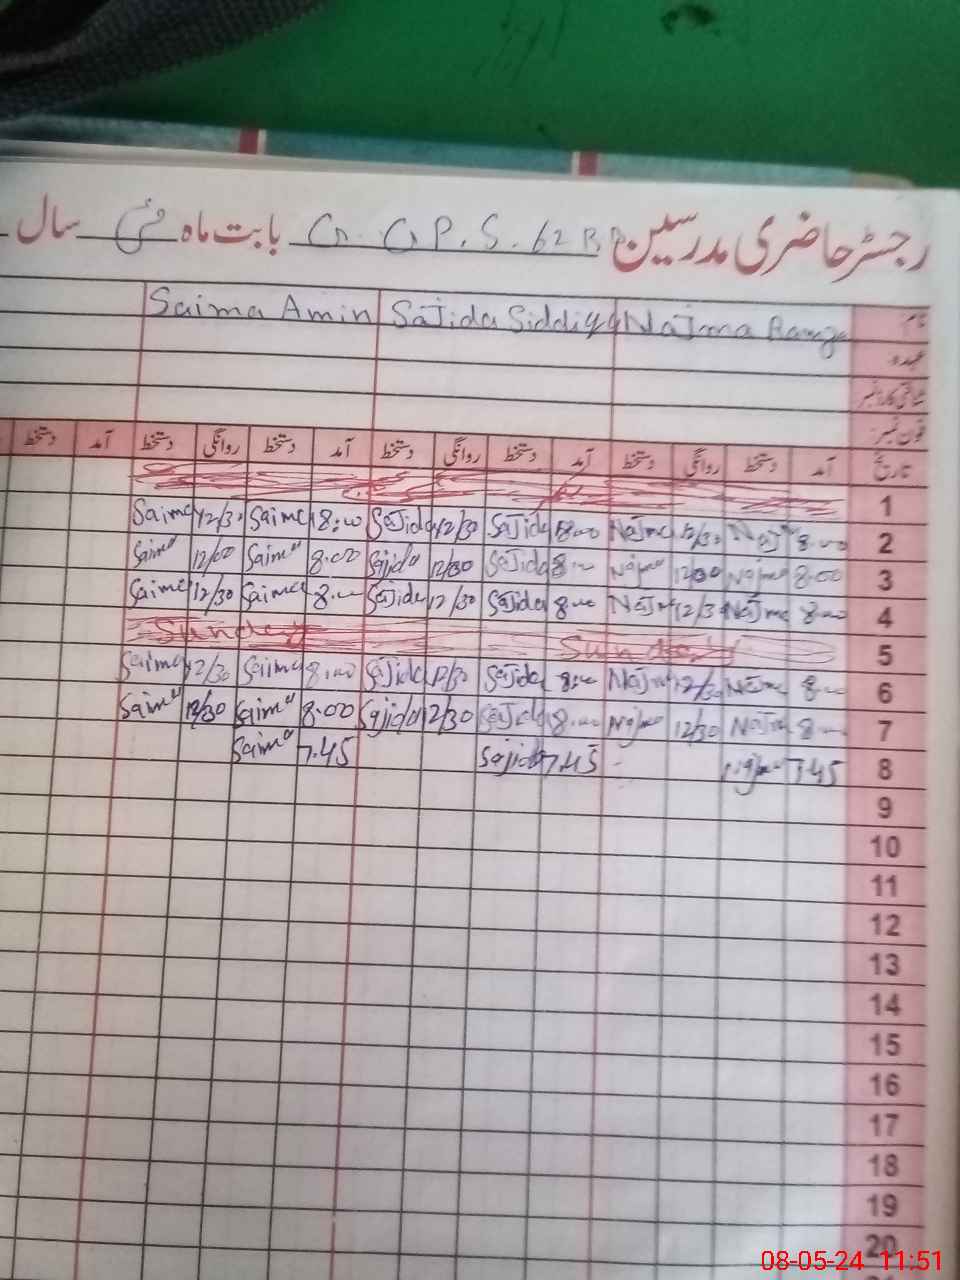 رجسٹر حاضری مدرسین G. G P. S. 62 بابت ماہ مئی سال
نام Najma Sajida Siddiqq Saima Amin
عہدہ
شناختی کارڈ نمبر
فون نمبر:
تاریخ آمد دستخط روانگی دستخط آمد دستخط روانگی دستخط آمد دستخط روانگی دستخط آمد دستخط
1
2 8.00 Najm 12/30 Najma 8.00 Sajida 12/30 Sajida 8:00 Saima 12/30 Saima
3 8.00 Najma 12/30 Najma 8.00 Sajida 12/30 Sajida 8.00 Saima 12/00 Saima
4 8.00 Najma 12/30 Najma 8.00 Sajida 12/30 Sajida 8.00 Saima 12/30 Saima
5 Sunday Sunday
6 8.00 Najma 12/30 Najma 8.00 Sajida 12/30 Sajida 8.00 Saima 12/30 Saima
7 8.00 Najma 12/30 Najma 8.00 Sajida 12/30 Sajida 8.00 Saima 12/30 Saima
8 7.45 Najma 7.45 Sajida 7.45 Saima
9
10
11
12
13
14
15
16
17
18
19
20
08-05-24 11:51